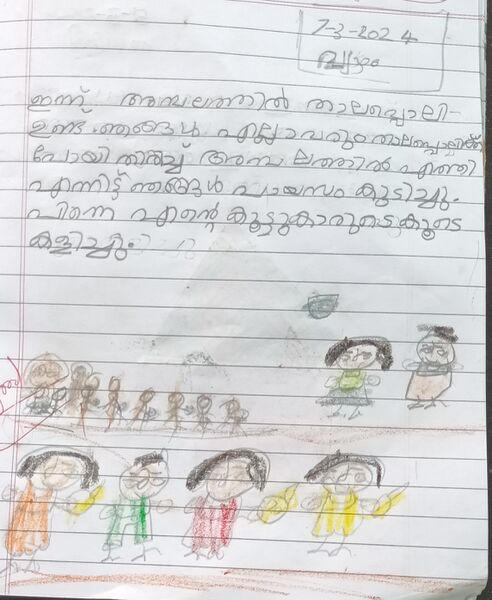 7-3-2024
വ്യാഴം
ഇന്ന് അമ്പലത്തിൽ താലപ്പൊലി-
ഉണ്ട്. ഞങ്ങൾ എല്ലാവരും താലപ്പൊലിക്ക്
പോയി തിരിച്ച് അമ്പലത്തിൽ എത്തി
എന്നിട്ട് ഞങ്ങൾ പായസം കുടിച്ചു.
പിന്നെ എന്റെ കൂട്ടുകാരുടെകൂടെ
കളിച്ചു.